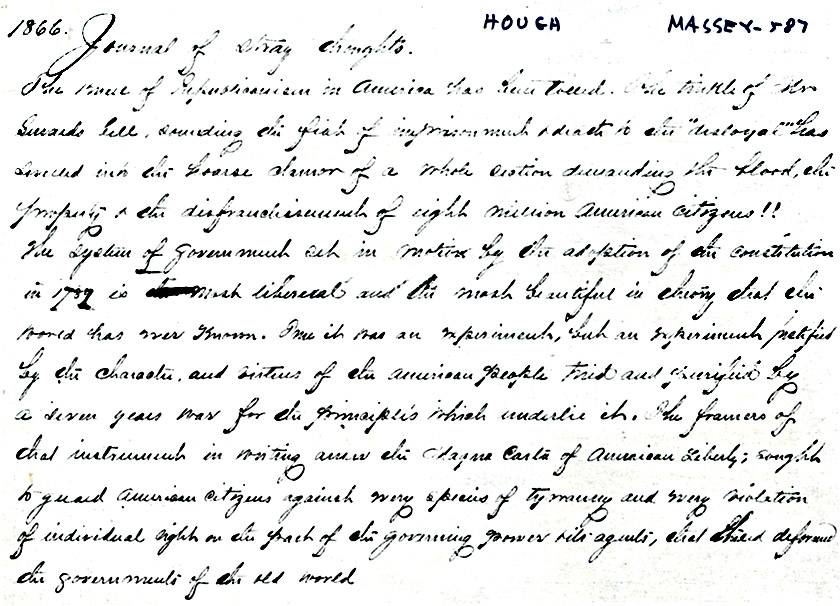 1866.
HOUGH MASSEY-587
Journal of stray thoughts.
The of Republicanism in America has been tolled. The tinkle of Mr
Sewards bell, sounding the fiat of imprisonment & death to the "disloyal" has
swelled into the hoarse clamor of a whole section demanding the blood, the
property & the disfranchisement of eight million American citizens!!
The system of government set in motion by the adoption of the constitution
in 1787 is most and the most beautiful in theory that the
world has ever known. True it was an experiment, but an experiment justified
by the character, and virtues of the American people tried and purified by
a seven years war for the principles which underlie it. The framers of
that instrument in writing the Magna Carta of American Liberty; sought
to guard American citizens against every species of tyranny and every violation
of individual right on the part of the governing power & its agents, that deformed
the governments of the old world